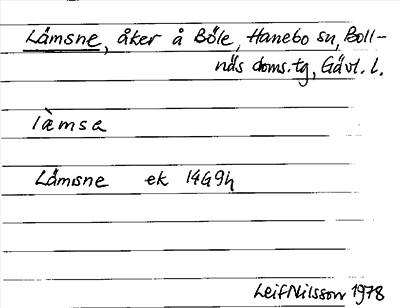 Låmsne, åker å Böle, Hanebo sn, Boll-
näs doms.tg, Gävl. l.
làmsa
Låmsne ek 14G9h
Leif Nilsson 1978